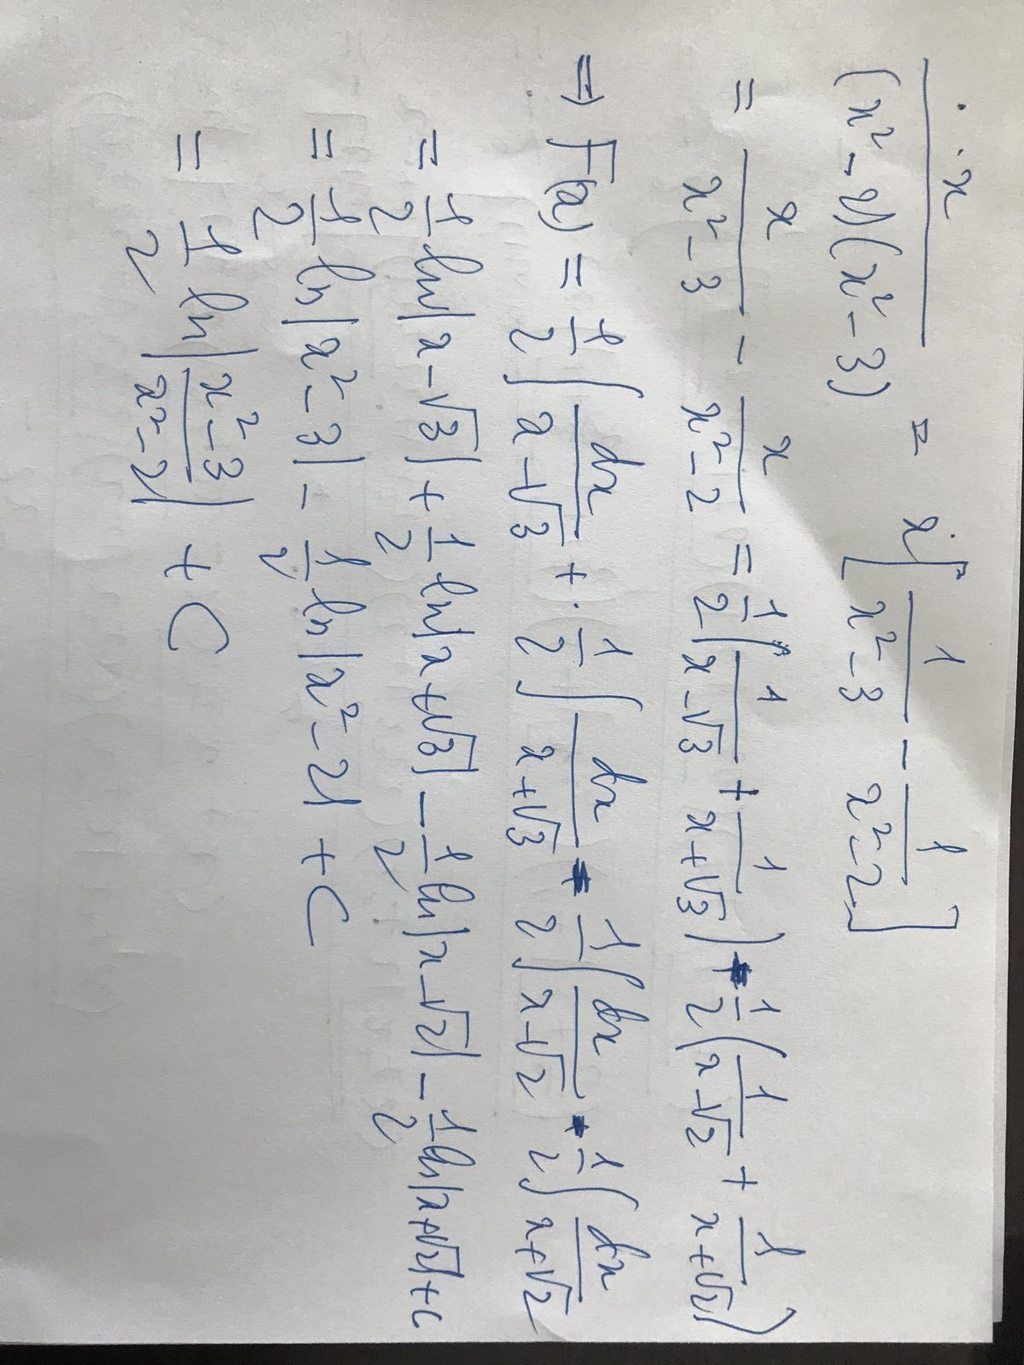 x/((x²-2)(x²-3)) = x[1/(x²-3) - 1/(x²-2)]
= x/(x²-3) - x/(x²-2) = 1/2(1/(x-√3) + 1/(x+√3)) - 1/2(1/(x-√2) + 1/(x+√2))
⇒ F(x) = 1/2∫dx/(x-√3) + 1/2∫dx/(x+√3) - 1/2∫dx/(x-√2) - 1/2∫dx/(x+√2)
= 1/2 ln|x-√3| + 1/2 ln|x+√3| - 1/2 ln|x-√2| - 1/2 ln|x+√2| + C
= 1/2 ln|x²-3| - 1/2 ln|x²-2| + C
= 1/2 ln|(x²-3)/(x²-2)| + C